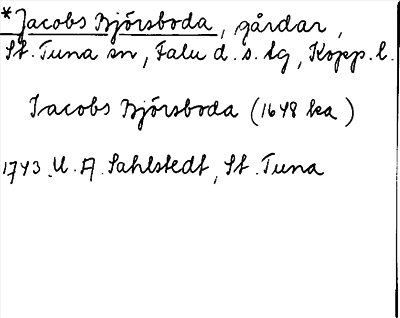 *Jacobs Björsboda, gårdar,
St. Tuna sn, Falu d. s. tg, Kopp. l.
Jacobs Björsboda (1648 ka)
1743. U. A. Sahlstedt, St. Tuna